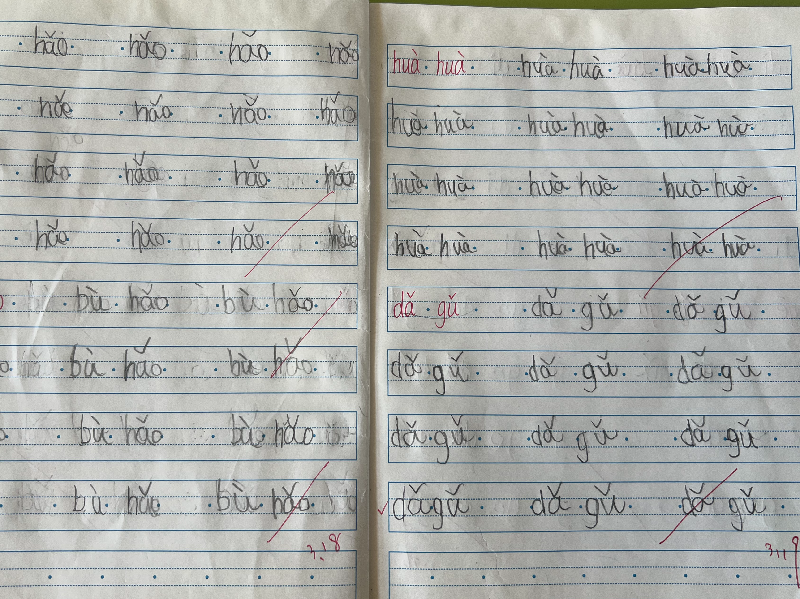 hǎo hǎo hǎo hǎo
hǎo hǎo hǎo hǎo
hǎo hǎo hǎo hǎo
hǎo hǎo hǎo hǎo
bù hǎo bù hǎo
bù hǎo bù hǎo
bù hǎo bù hǎo
bù hǎo bù hǎo
3.18
huà huà huà huà huà huà
huà huà huà huà huà huà
huà huà huà huà huà huà
huà huà huà huà huà huà
dǎ gǔ dǎ gǔ dǎ gǔ
dǎ gǔ dǎ gǔ dǎ gǔ
dǎ gǔ dǎ gǔ dǎ gǔ
dǎ gǔ dǎ gǔ dǎ gǔ
3.19